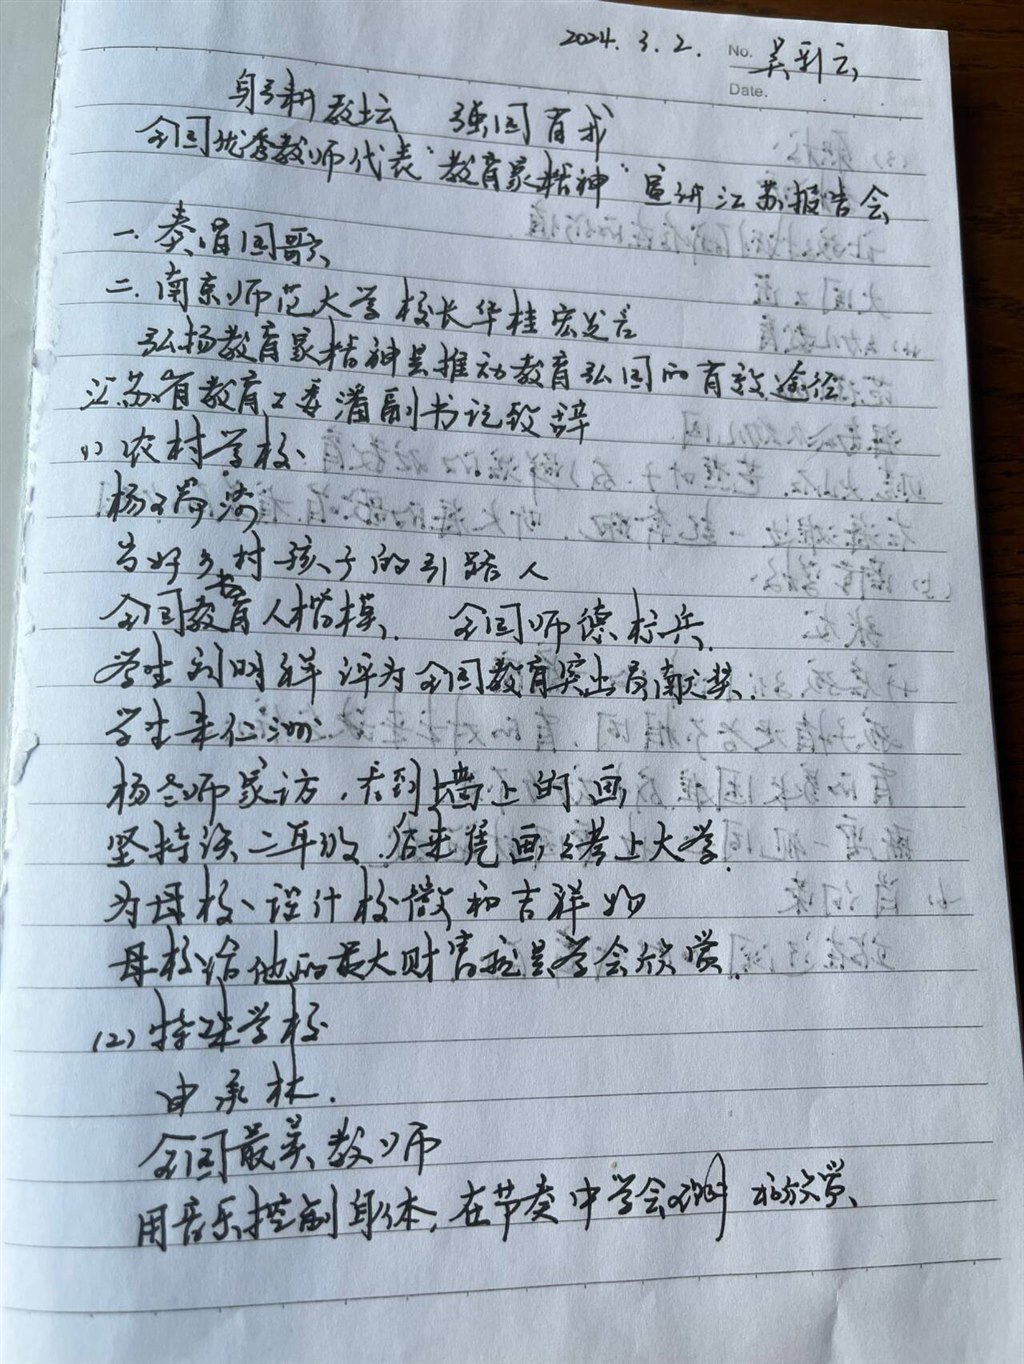 2024.3.2. No. 吴彩云
Date.
躬耕教坛 强国有我
全国优秀教师代表"教育家精神"宣讲江苏报告会
一.奏唱国歌
二.南京师范大学校长华桂宏发言
弘扬教育家精神是推动教育弘国的有效途径
江苏省教育工委潘副书记致辞
(1)农村学校
杨
当好乡村孩子的引路人
全国教书育人楷模. 全国师德标兵.
学生刘明祥评为全国教育突出贡献奖.
学生朱仁洲
杨老师家访,看到墙上的画
坚持读二年级.后来凭画画考上大学.
为母校设计校徽和吉祥物
母校给他的最大财富就是学会欣赏.
(2)特殊学校
申承林.
全国最美教师
用音乐控制身体,在节奏中学会 和欣赏